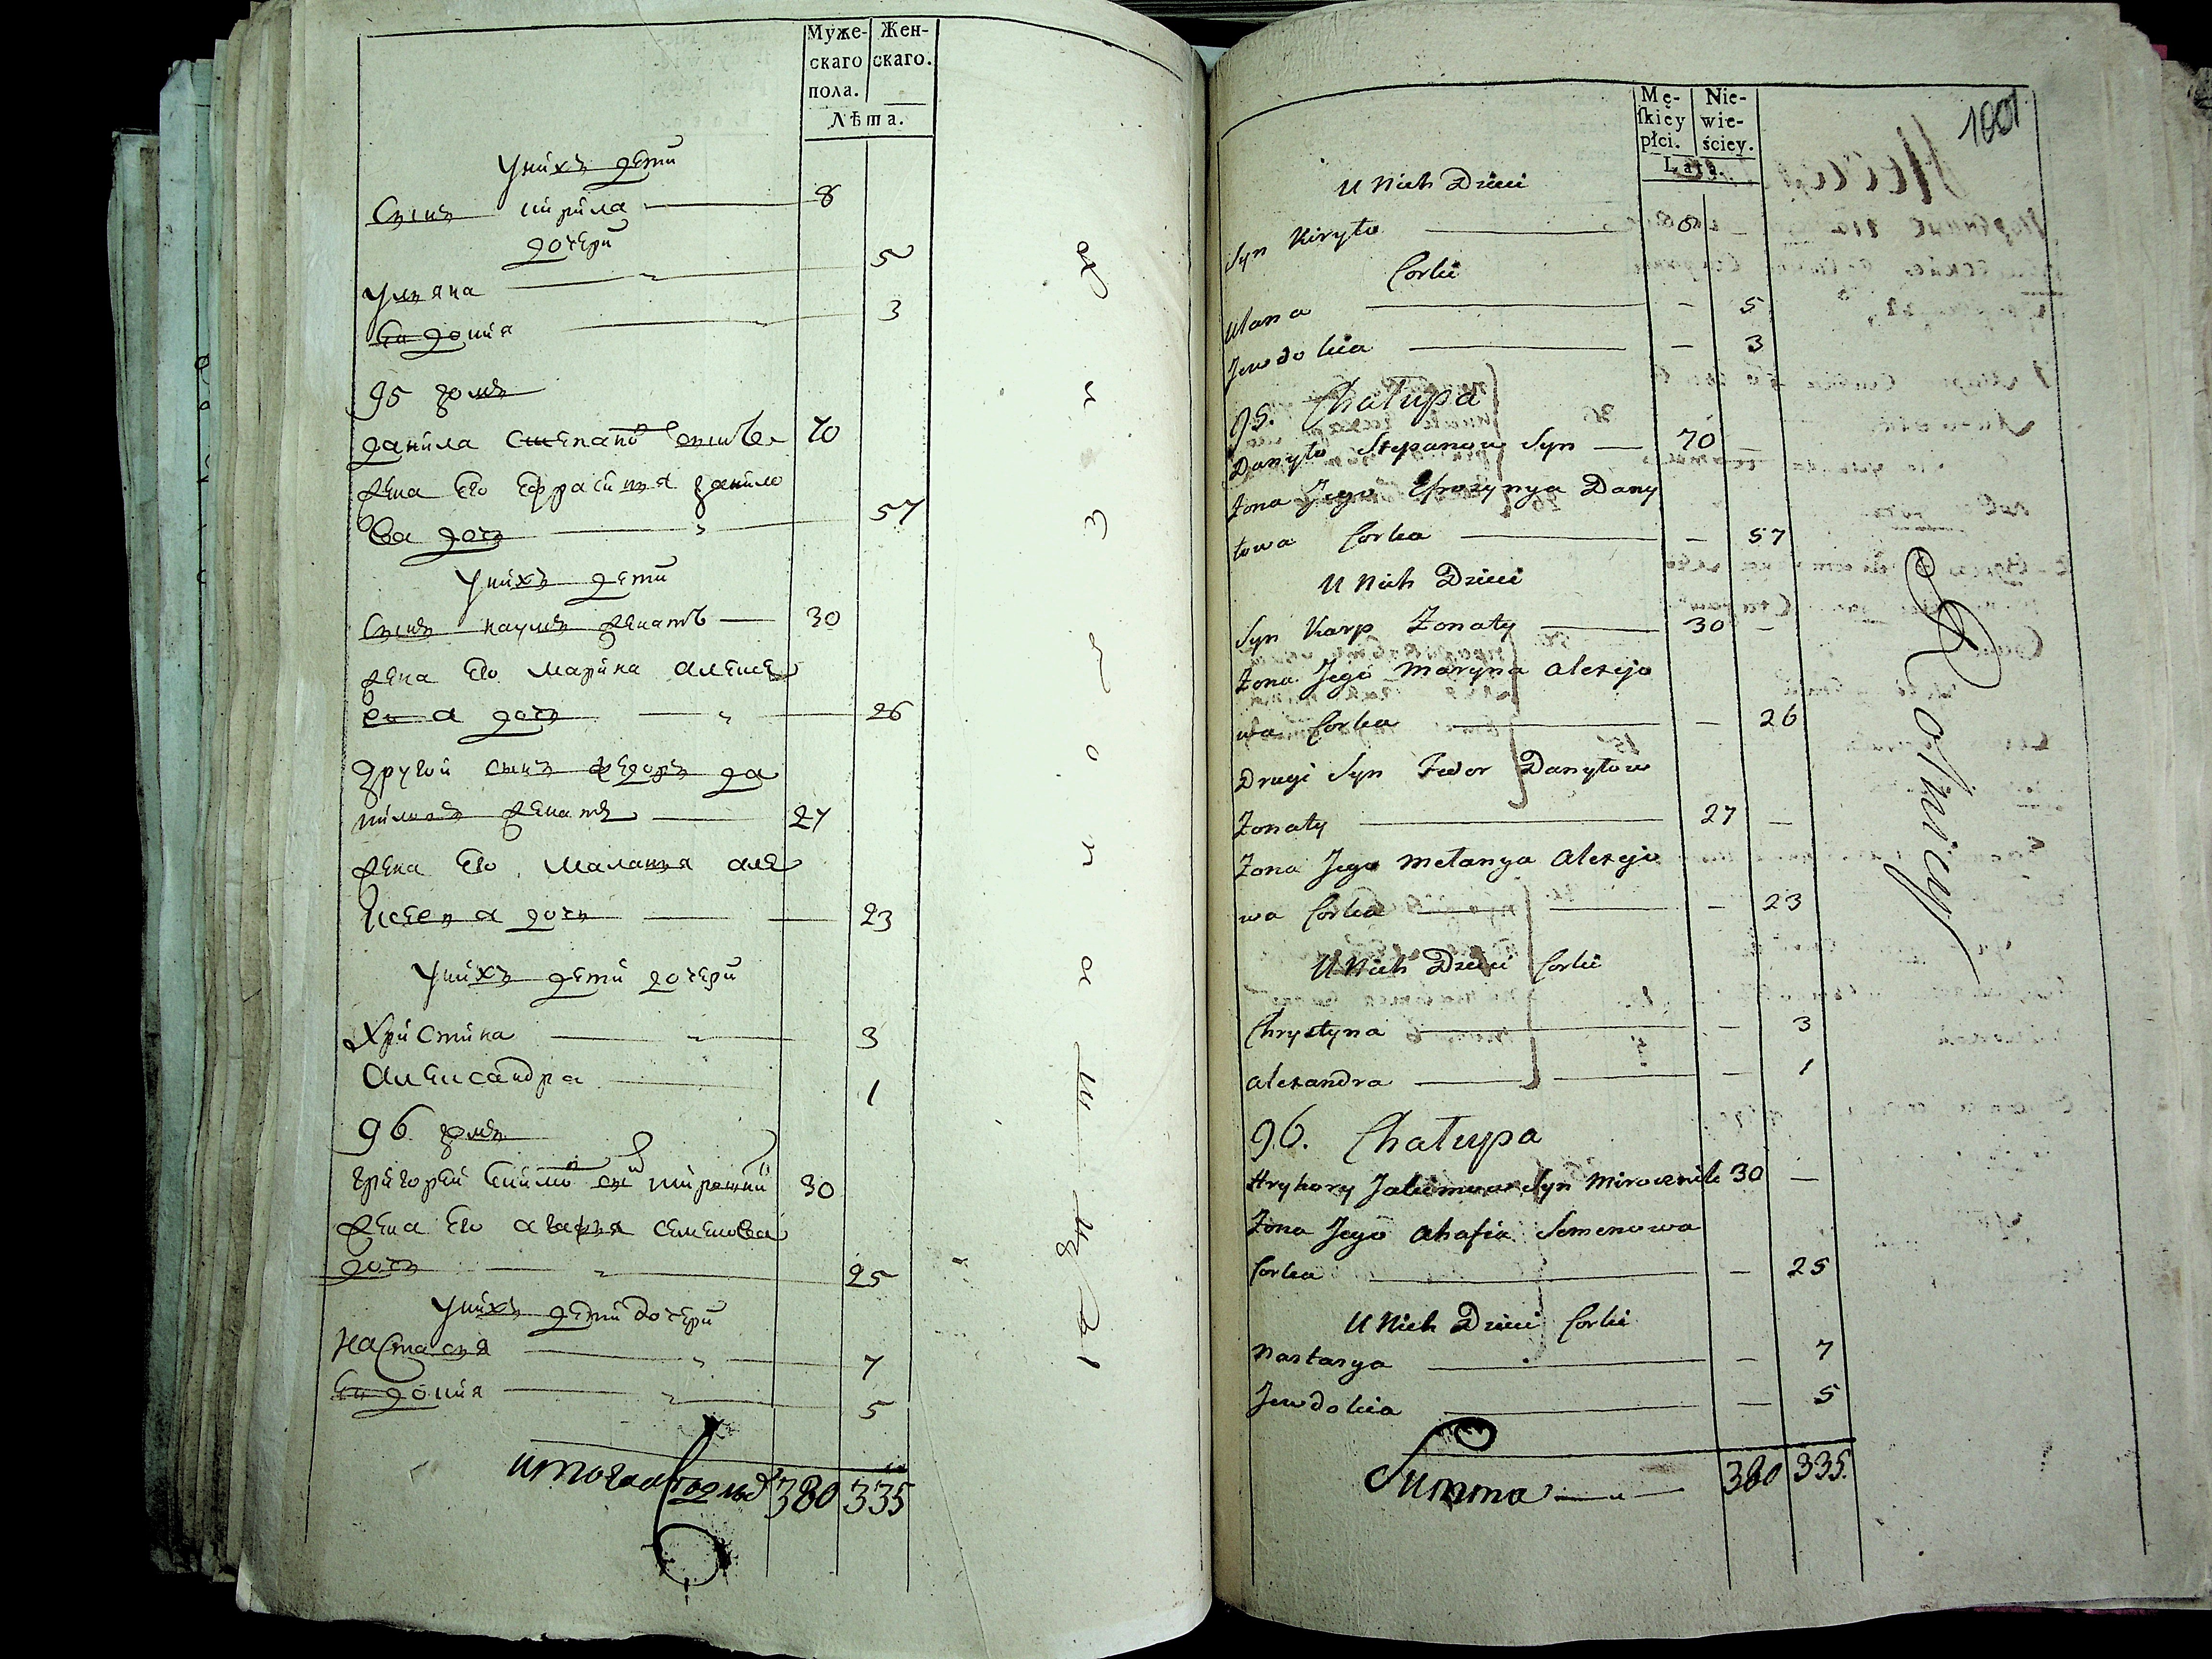 Муже-
скаго
пола.
Жен-
скаго.
Лѣта.
Унихъ дети
Сынъ кирила 8
дочери
Ульяна 5
Евдокия 3
95 домъ
данила степановъ сынъ 70
жена Его Ефрасиньа данило
ва дочь 57
Унихъ дети
Сынъ карпъ женатъ 30
жена Его Марина алексе
ева дочь 26
другой сынъ федоръ да
ниловъ женатъ 27
жена Его Маланья але
ксеева дочь 23
Унихъ дети дочери
Христина 3
Александра 1
96 домъ
григорей 30
жена Его агафья семенова
дочь 25
Унихъ дети дочери
Настасья 7
Евдокия 5
итого 380 335
Mę-
ſkiey
płci.
Nie-
wie-
ściey.
Lata.
1001
U Nich Dzieci
Syn Kiryło 8
Corki
Ulana – 5
Jewdokia – 3
95. Chałupa
Danyło Stepanow Syn 70 –
Żona Jego Efrozynya Dany
łowa Corka – 57
U Nich Dzieci
Syn Karp Żonaty 30 –
Żona Jego Maryna Alexejo
wa Corka – 26
Drugi Syn Fedor Danyłow
Żonaty 27 –
Żona Jego Melanya Alexejo
wa Corka – 23
U Nich Dzieci Corki
Chrystyna – 3
Alexandra – 1
96. Chałupa
Hryhory Jakimow Syn Mirocznik 30 –
Żona Jego Ahafia Semenowa
Corka – 25
U Nich Dzieci Corki
Nastasya – 7
Jewdokia – 5
Summa 380 335.